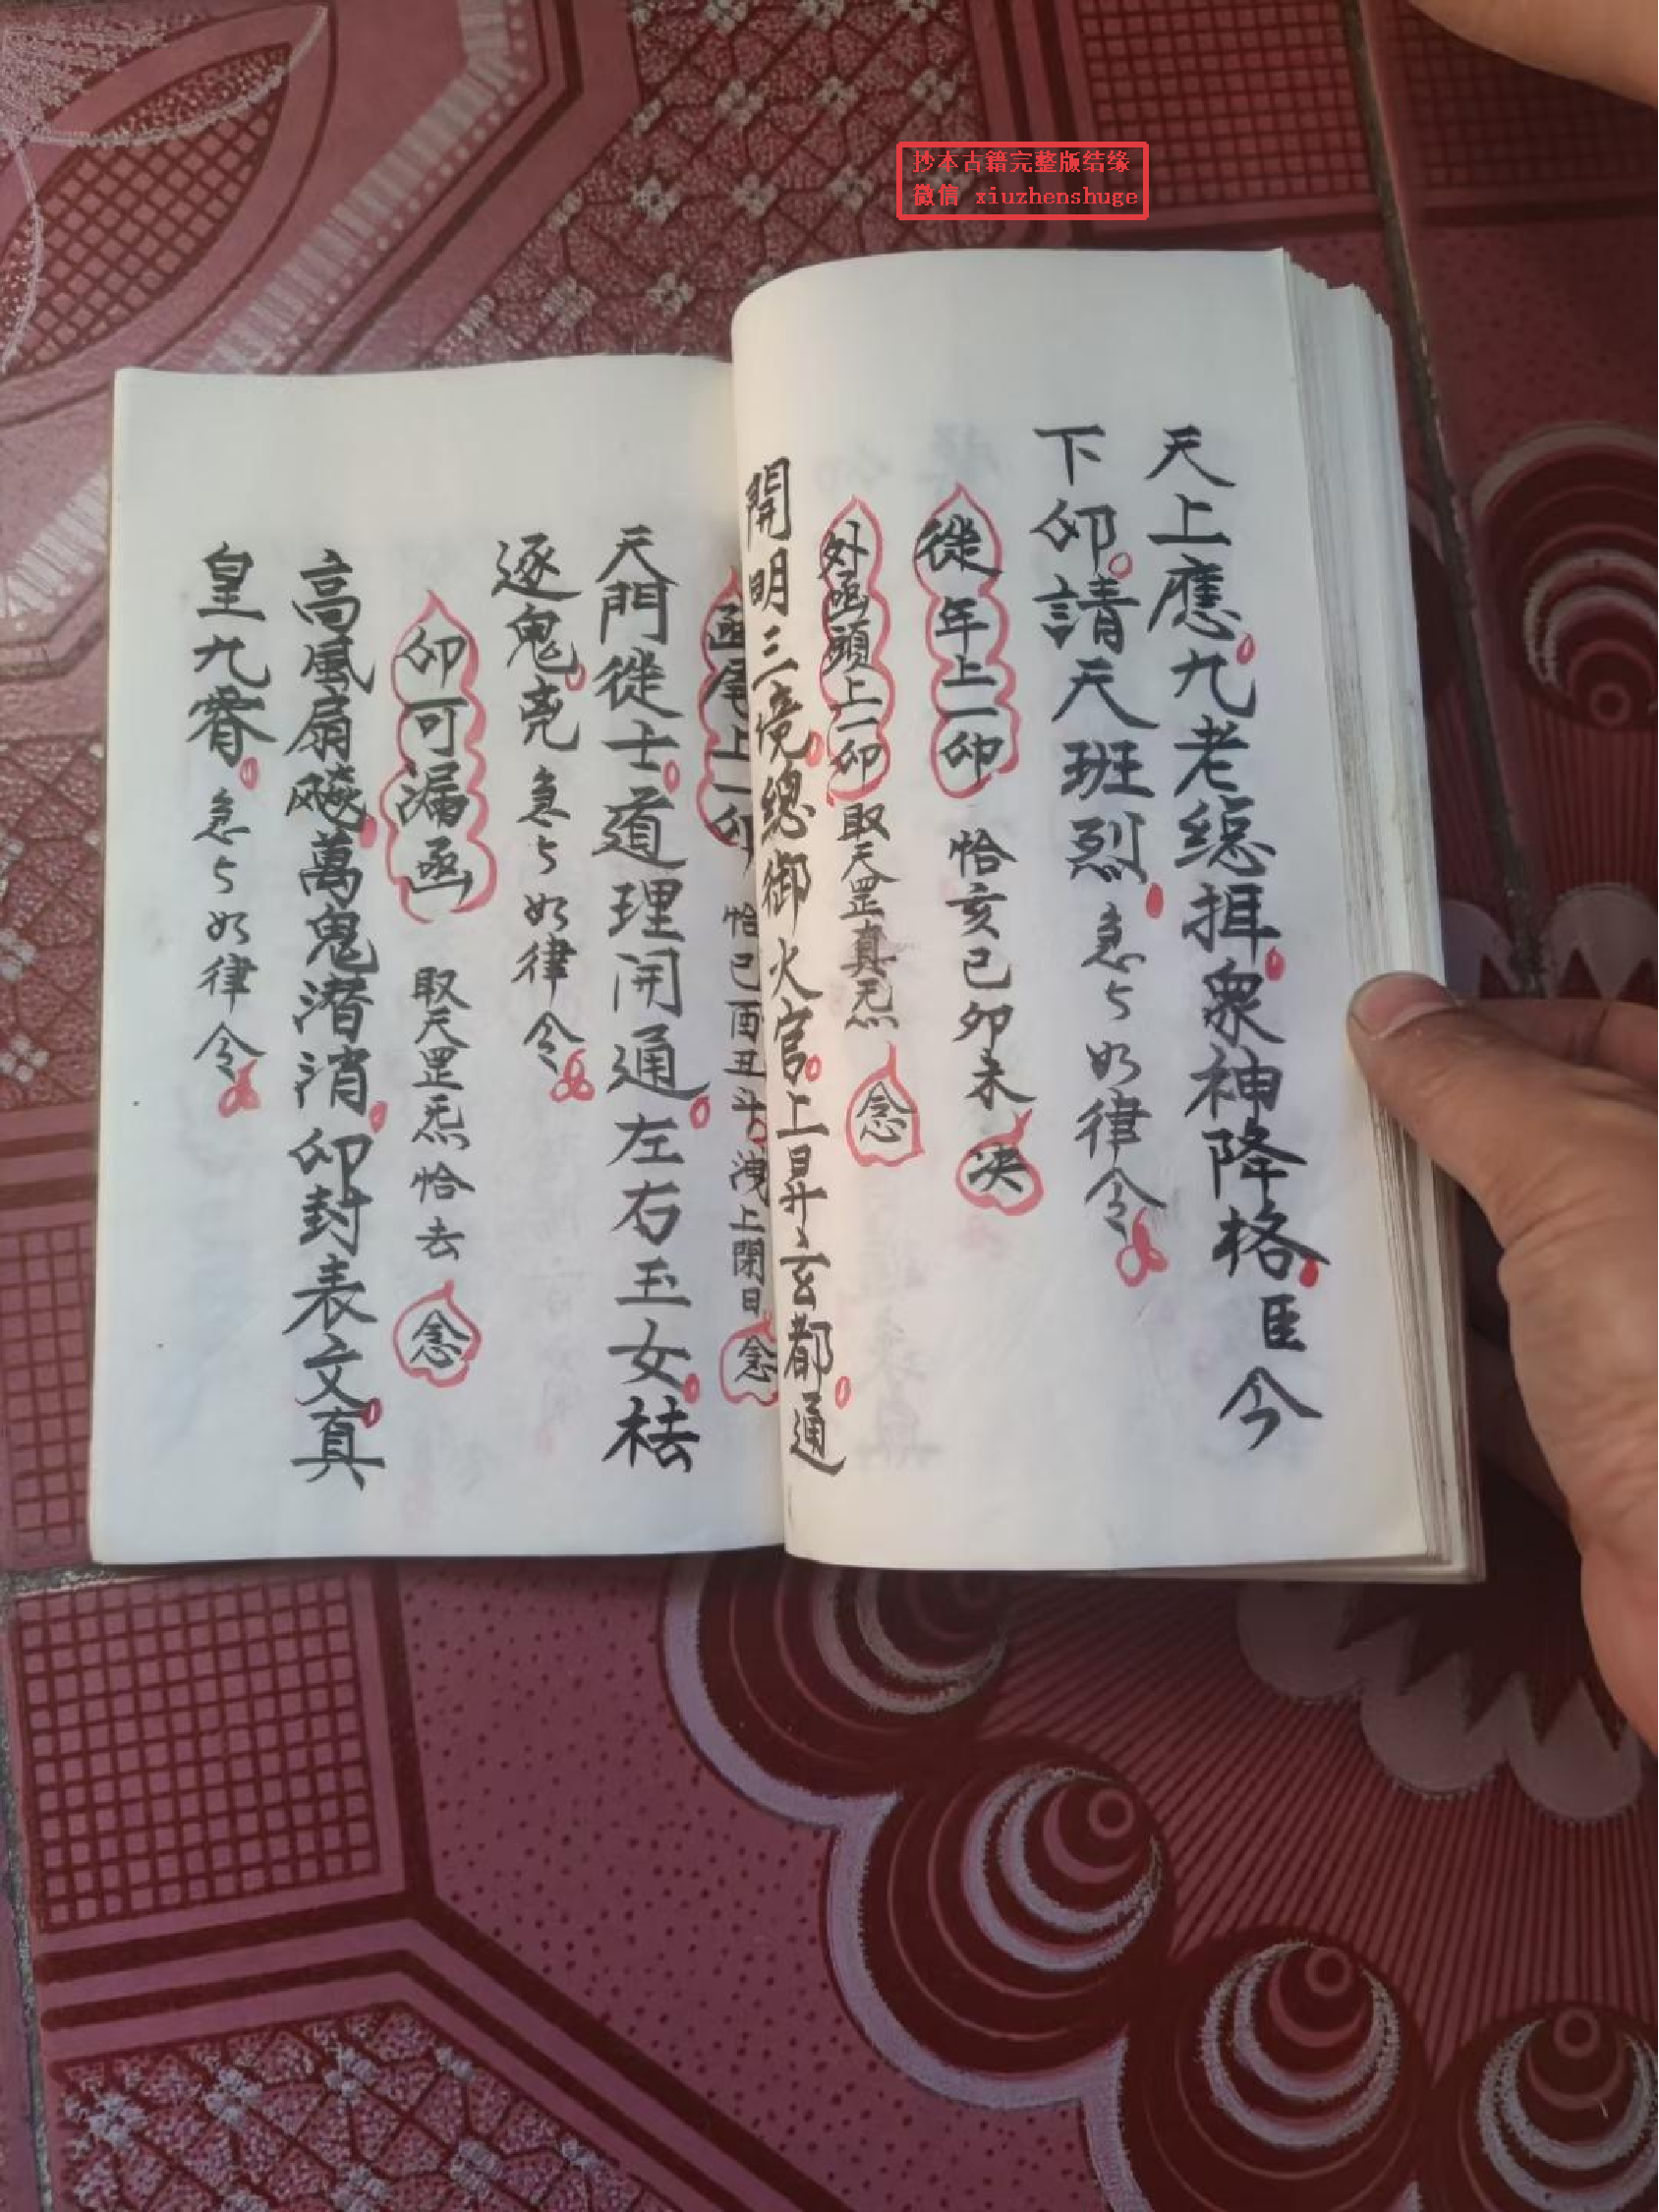 抄本古籍完整版结缘
微信 xiuzhenshuge
天上應九老總揖衆神降格臣今
下卬請天班烈急々如律令
從年上一卬 恰亥已卯未決
外函頭上一卬 取天罡真炁 念
開明三境總御火官上昇玄都通
函尾上一卬 恰已酉丑斗洩上閉日 念
天門徙士道理開通左右玉女祛
逐鬼兇急々如律令
卬可漏函 取天罡炁恰去 念
高風扇飈萬鬼潛消卬封表文真
皇九霄急々如律令